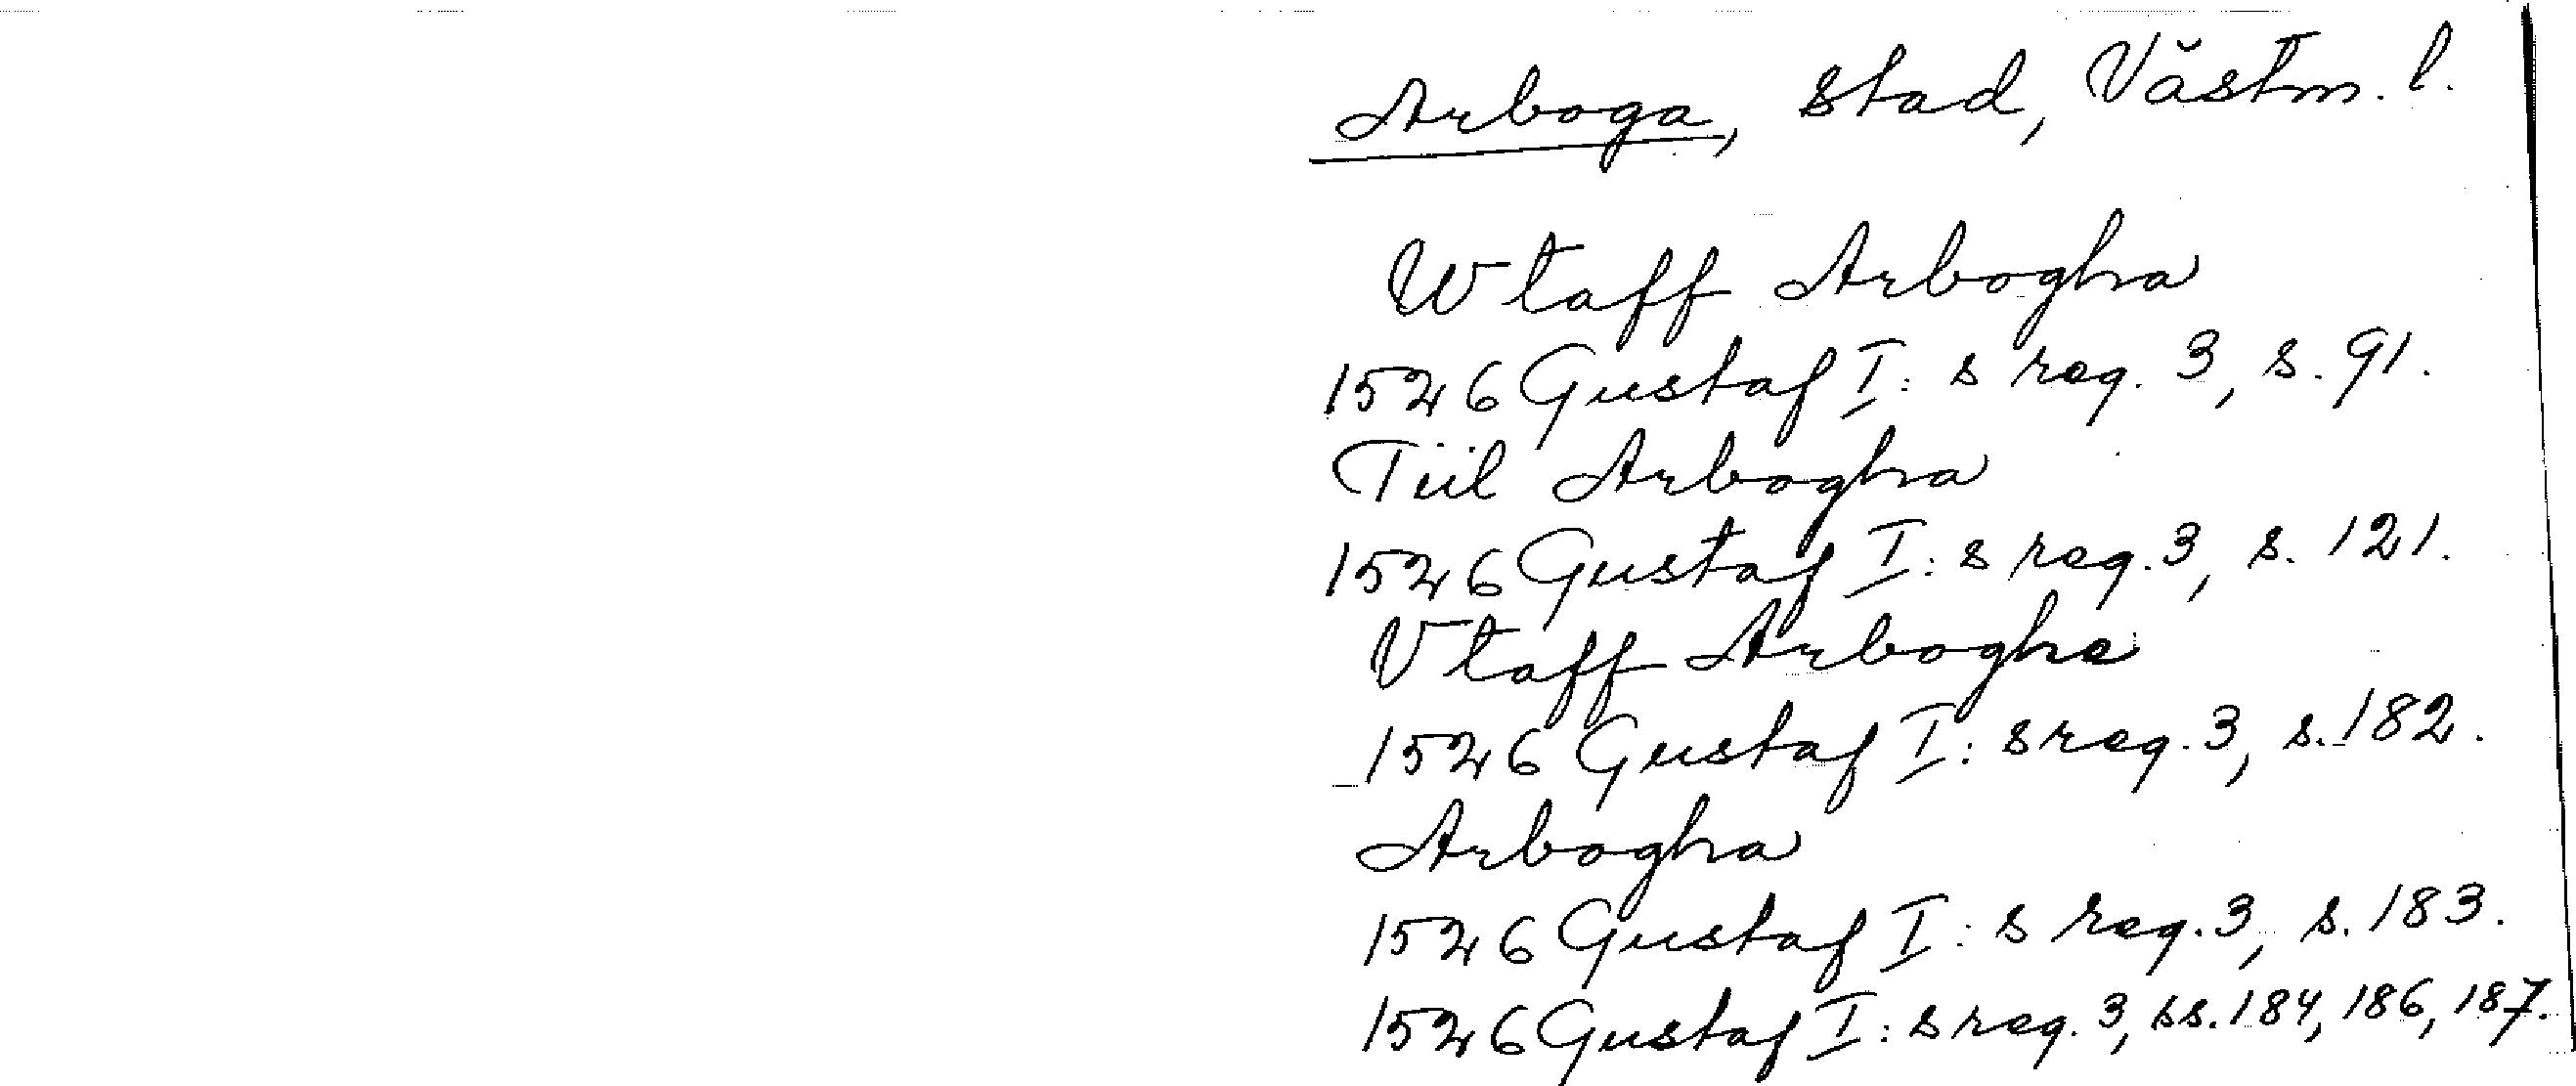 Arboga, stad, Västm. l.
Wtaff Arbogha
1526 Gustaf I:s reg. 3, s. 91.
Tiil Arbogha
1526 Gustaf I:s reg. 3, s. 121.
Vtaff Arbogha
1526 Gustaf I:s reg. 3, s. 182.
Arbogha
1526 Gustaf I:s reg. 3, s. 183.
1526 Gustaf I:s reg. 3, ss. 184, 186, 187.